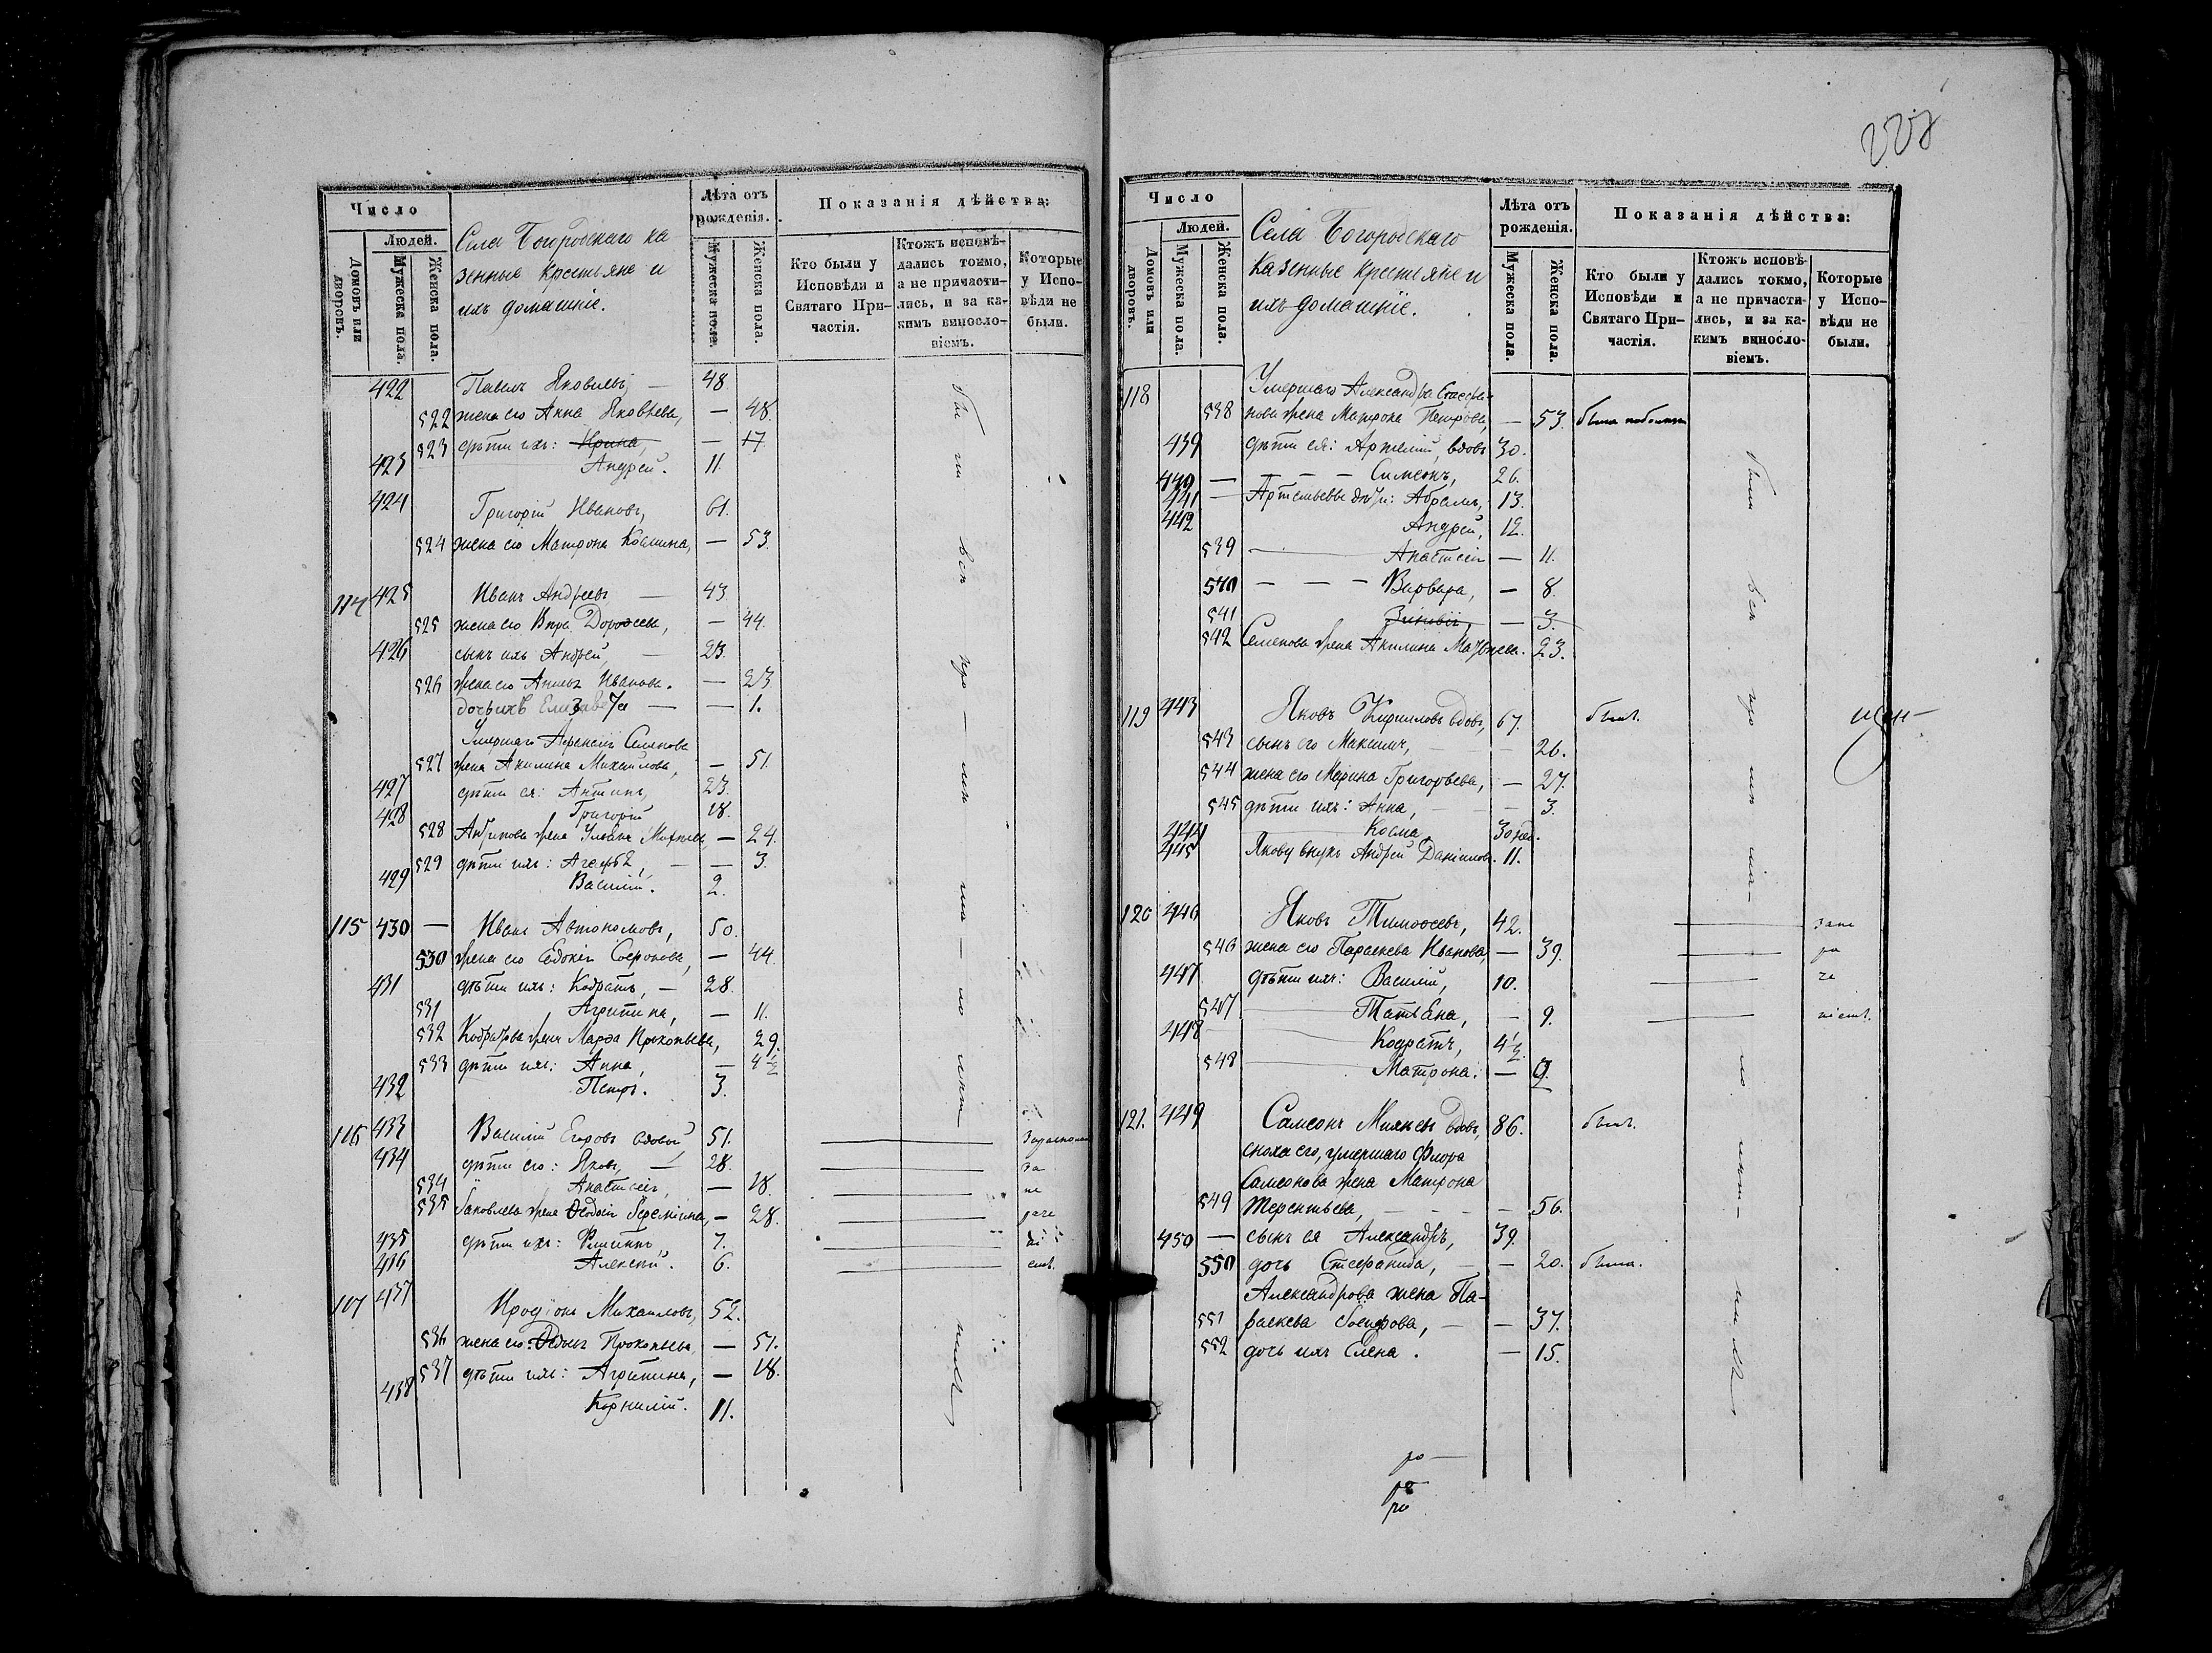 Число
Людей.
Домовъ или дворовъ.
Мужеска пола.
Женска пола.
Села Богородскаго ка
зенные крестьяне и
ихъ домашніе.
Лѣта отъ рожденія.
Мужеска пола.
Женска пола.
Показанія дѣйства:
Кто были у Исповѣди и Святаго При-частія.
Ктожъ исповѣ-дались токмо, а не причасти-лись, и за ка-кимъ винословіемъ.
Которые у Испо-вѣди не были.
422 Павелъ Яковлевъ — 48
522 жена его Анна Яковлева, — 48.
523 дѣти ихъ: Ирина, — 17
423 Андрей. 11.
424 Григорій Ивановъ, 61.
524 жена его Матрона Косьмина, — 53.
114 425 Иванъ Андреевъ — 43.
525 жена его Вѣра Дороѳеева, — 44.
426 сынъ ихъ Андрей, — 23.
526 жена его Ивановa. — 23
дочь ихъ Елизавета — — 1.
Умершаго Семенова
527 жена Акилина Михайлова, — 51.
427 дѣти ея: Антипъ, 23.
428 Григорій 18.
528 Антипова жена — 24.
529 дѣти ихъ: — — 3.
429 Василій. 2.
115 430 — Иванъ Автономовъ, 50.
530 жена его Евдокія Софронова, — 44.
431 дѣти ихъ: Кодратъ, — 28.
531 Агрипина, — 11.
532 Кодратова жена Марѳа Прокопьева, 29.
533 дѣти ихъ: Анна, — 4½
432 Петръ. 3.
116 433 Василій Егоровъ вдовый 51.
434 дѣти его: Яковъ, — 28.
534 Анастасія, — 18.
535 Яковлева жена Ѳеодосія — 28.
435 дѣти ихъ: 7.
436 Алексѣй. 6.
за
не
раче
ні
емъ.
117 437 Иродіонъ Михайловъ, 52.
536 жена его: Прокопьева — 51.
537 дѣти ихъ: Агрипина, — 18.
438 Корнилій. 11.
Число
Людей.
Домовъ или дворовъ.
Мужеска пола.
Женска пола.
Села Богородскаго
казенные крестьяне и
ихъ домашніе.
Лѣта отъ рожденія.
Мужеска пола.
Женска пола.
Показанія дѣйства:
Кто были у Исповѣди и Святаго При-частія.
Ктожъ исповѣ-дались токмо, а не причасти-лись, и за ка-кимъ винословіемъ.
Которые у Испо-вѣди не были.
118 Умершаго Александра Стефа-
538 нова жена Матрона Петрова, — 53. была
439 дѣти ея: Артемій, вдовъ 30.
440 — — — — Симеонъ, 26.
441 — Артемьевы дѣти: Абрамъ, 13.
442 Андрей, 12.
539 — Анастасія — 11.
540 — — — Варвара, — 8.
541 Зиновія, — 3.
542 Семенова жена Акилина — 23.
119 443 Яковъ Кирилловъ вдовъ, 67. былъ.
543 сынъ его Максимъ, — — 26.
544 жена его Марина Григорьева, — 27.
545 дѣти ихъ: Анна, — — 3.
444 Косма 30 нед.
445 Якову внукъ Андрей Даніиловъ. 11.
120 446 Яковъ Тимоѳеевъ, 42.
546 жена его Параскева Иванова, — 39.
447 дѣти ихъ: Василій, 10.
547 Татьяна, — 9.
448 Кодратъ, 4½
548 Матрона. — 9.
за не
ра
че
ніемъ.
121. 449 Самсонъ вдовъ, 86. былъ.
сноха его, умершаго Флора
Самсонова жена Матрона
549 Терентьева, — — — 56.
450 — сынъ ея Александръ, 39.
550 дочь Стефанида, — — 20. была.
Александрова жена Па-
551 раскева Іосифова, — — 37.
552 дочь ихъ Елена. — 15.